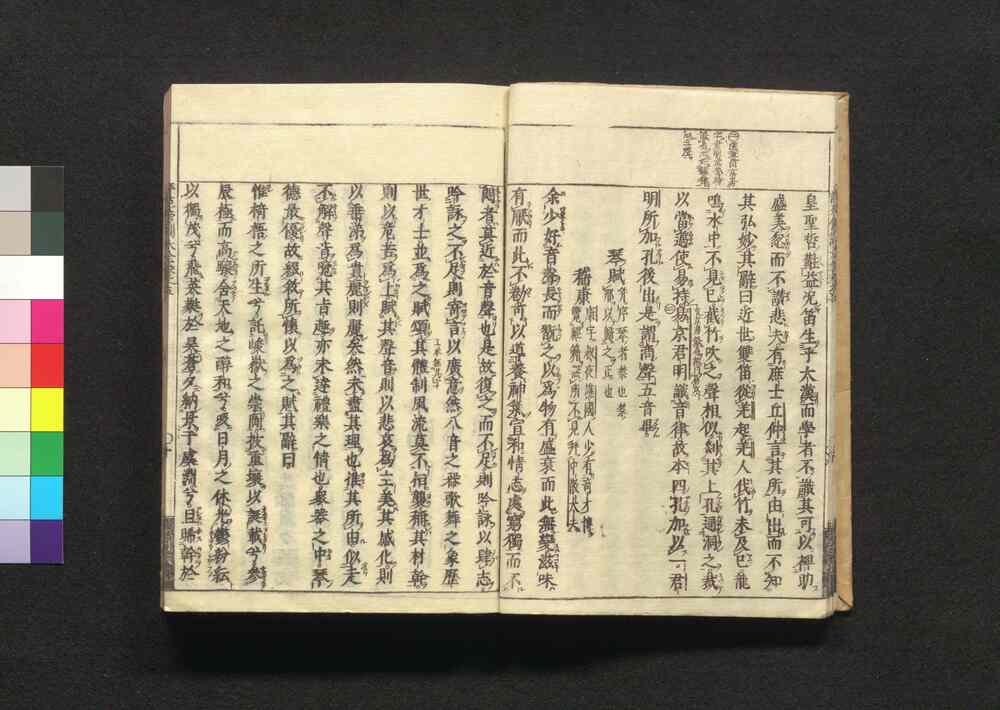 皇聖哲黈益況笛生乎大漢而學者不識其可以裨助
盛美忽而不讚悲夫有庶士丘仲言其所由出而不知
其弘妙其辭曰近世雙笛從羌起羌人伐竹未及已龍
鳴水中不見已截竹吹之聲相似剡其上孔通洞之裁
以當簻使易持易京君明識音律故本四孔加以一君
明所加孔後出是謂商聲五音畢
琴賦
嵇康
余少好音聲長而翫之以為物有盛衰而此無變滋味
有厭而此不勌可以道養神氣宣和情志處窮獨而不
悶者莫近於音聲也是故復之而不足則吟詠以肆志
吟詠之不足則寄言以廣意然八音之器歌舞之象歷
世才士並為之賦頌其體制風流莫不相襲稱其材幹
則以危苦為上賦其聲音則以悲哀為主美其感化則
以垂涕為貴麗則麗矣然未盡其理也推其所由似元
不解聲音覽其旨趣亦未達禮樂之情也衆器之中琴
德最優故綴敘所懷以為之賦其辭曰
惟椅梧之所生兮託峻嶽之崇岡披重壤以誕載兮參
辰極而高驤含天地之醇和兮吸日月之休光鬱紛紜
以獨茂兮飛英蕤於昊蒼夕納景于虞淵兮旦晞幹於